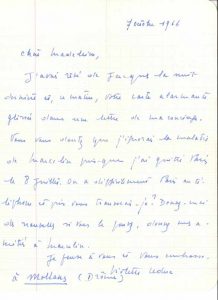 7 octobre 1966
Chère Madeleine,
J'avais rêvé de Jacques la nuit
dernière et, ce matin, votre carte alarmante
glissée dans une lettre de ma concierge.
Vous vous doutez que j'ignorais la maladie
de Marcelin puisque j'ai quitté Paris
le 8 juillet. On a difficilement Paris au té-
léphone et puis vous trouverai-je ? Donnez-moi
de nouvelles si vous le pouvez, donnez mes a-
mitiés à Marcelin.
Je pense à vous et vous embrasse,
Violette Leduc
à Mollans (Drôme)